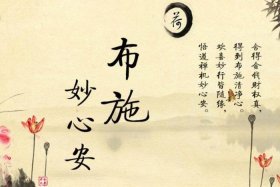 荷
布施
妙心安
舍得舍钱财权真、
得到布施清净心。
欢喜妙行皆随缘、
悟道禅机妙心安。